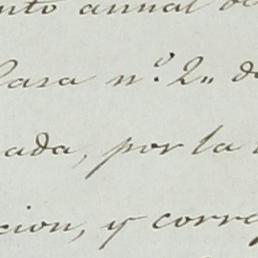 nto annal de
Casa n.º 2„ de
ada, por la
cion, y corre